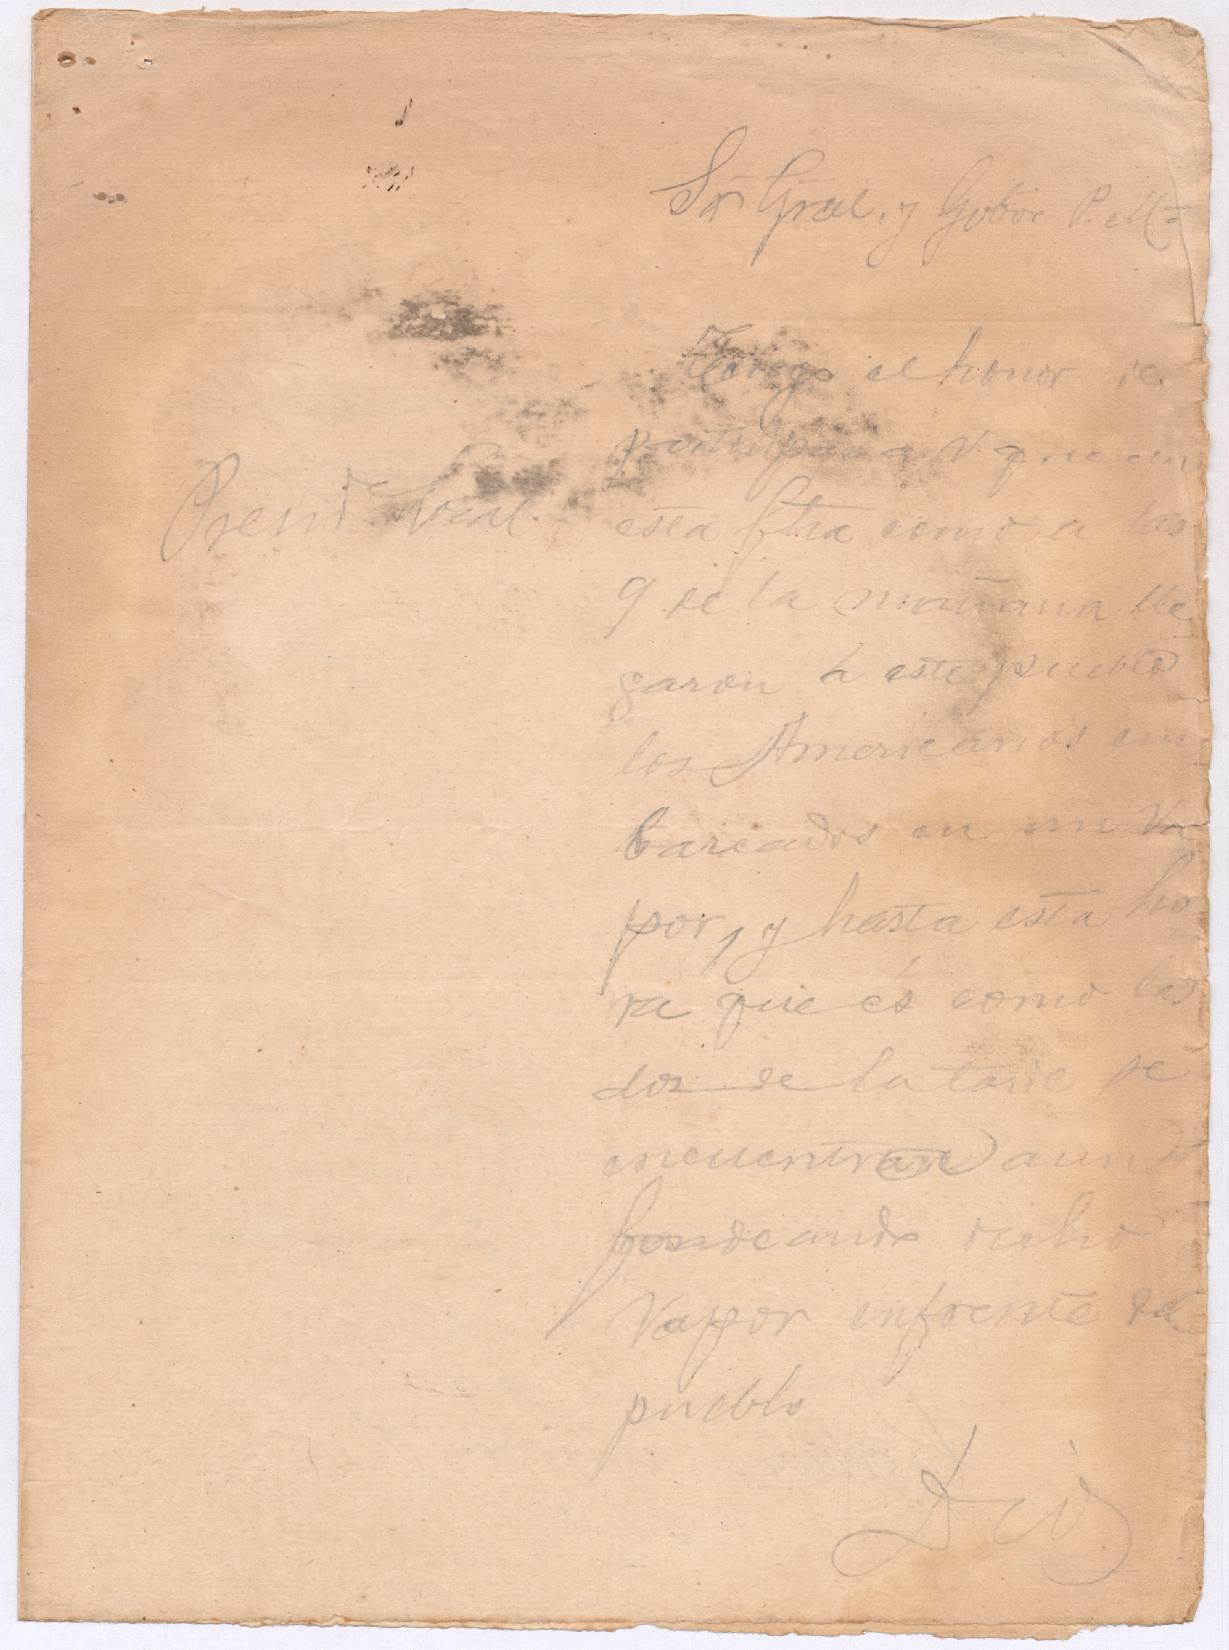 Sor Gral. y Gobor P. M.=
Tengo el honor de
participar a V. que en
Presidte Local. esta fha como a las
9 de la mañana lle
garon á este pueblo
los Americanos em-
barcados en un Va
por, y hasta esta ho
ra que és como las
dos de la tarde se
encuentran aun
fondeando dicho
Vapor enfrente del
pueblo